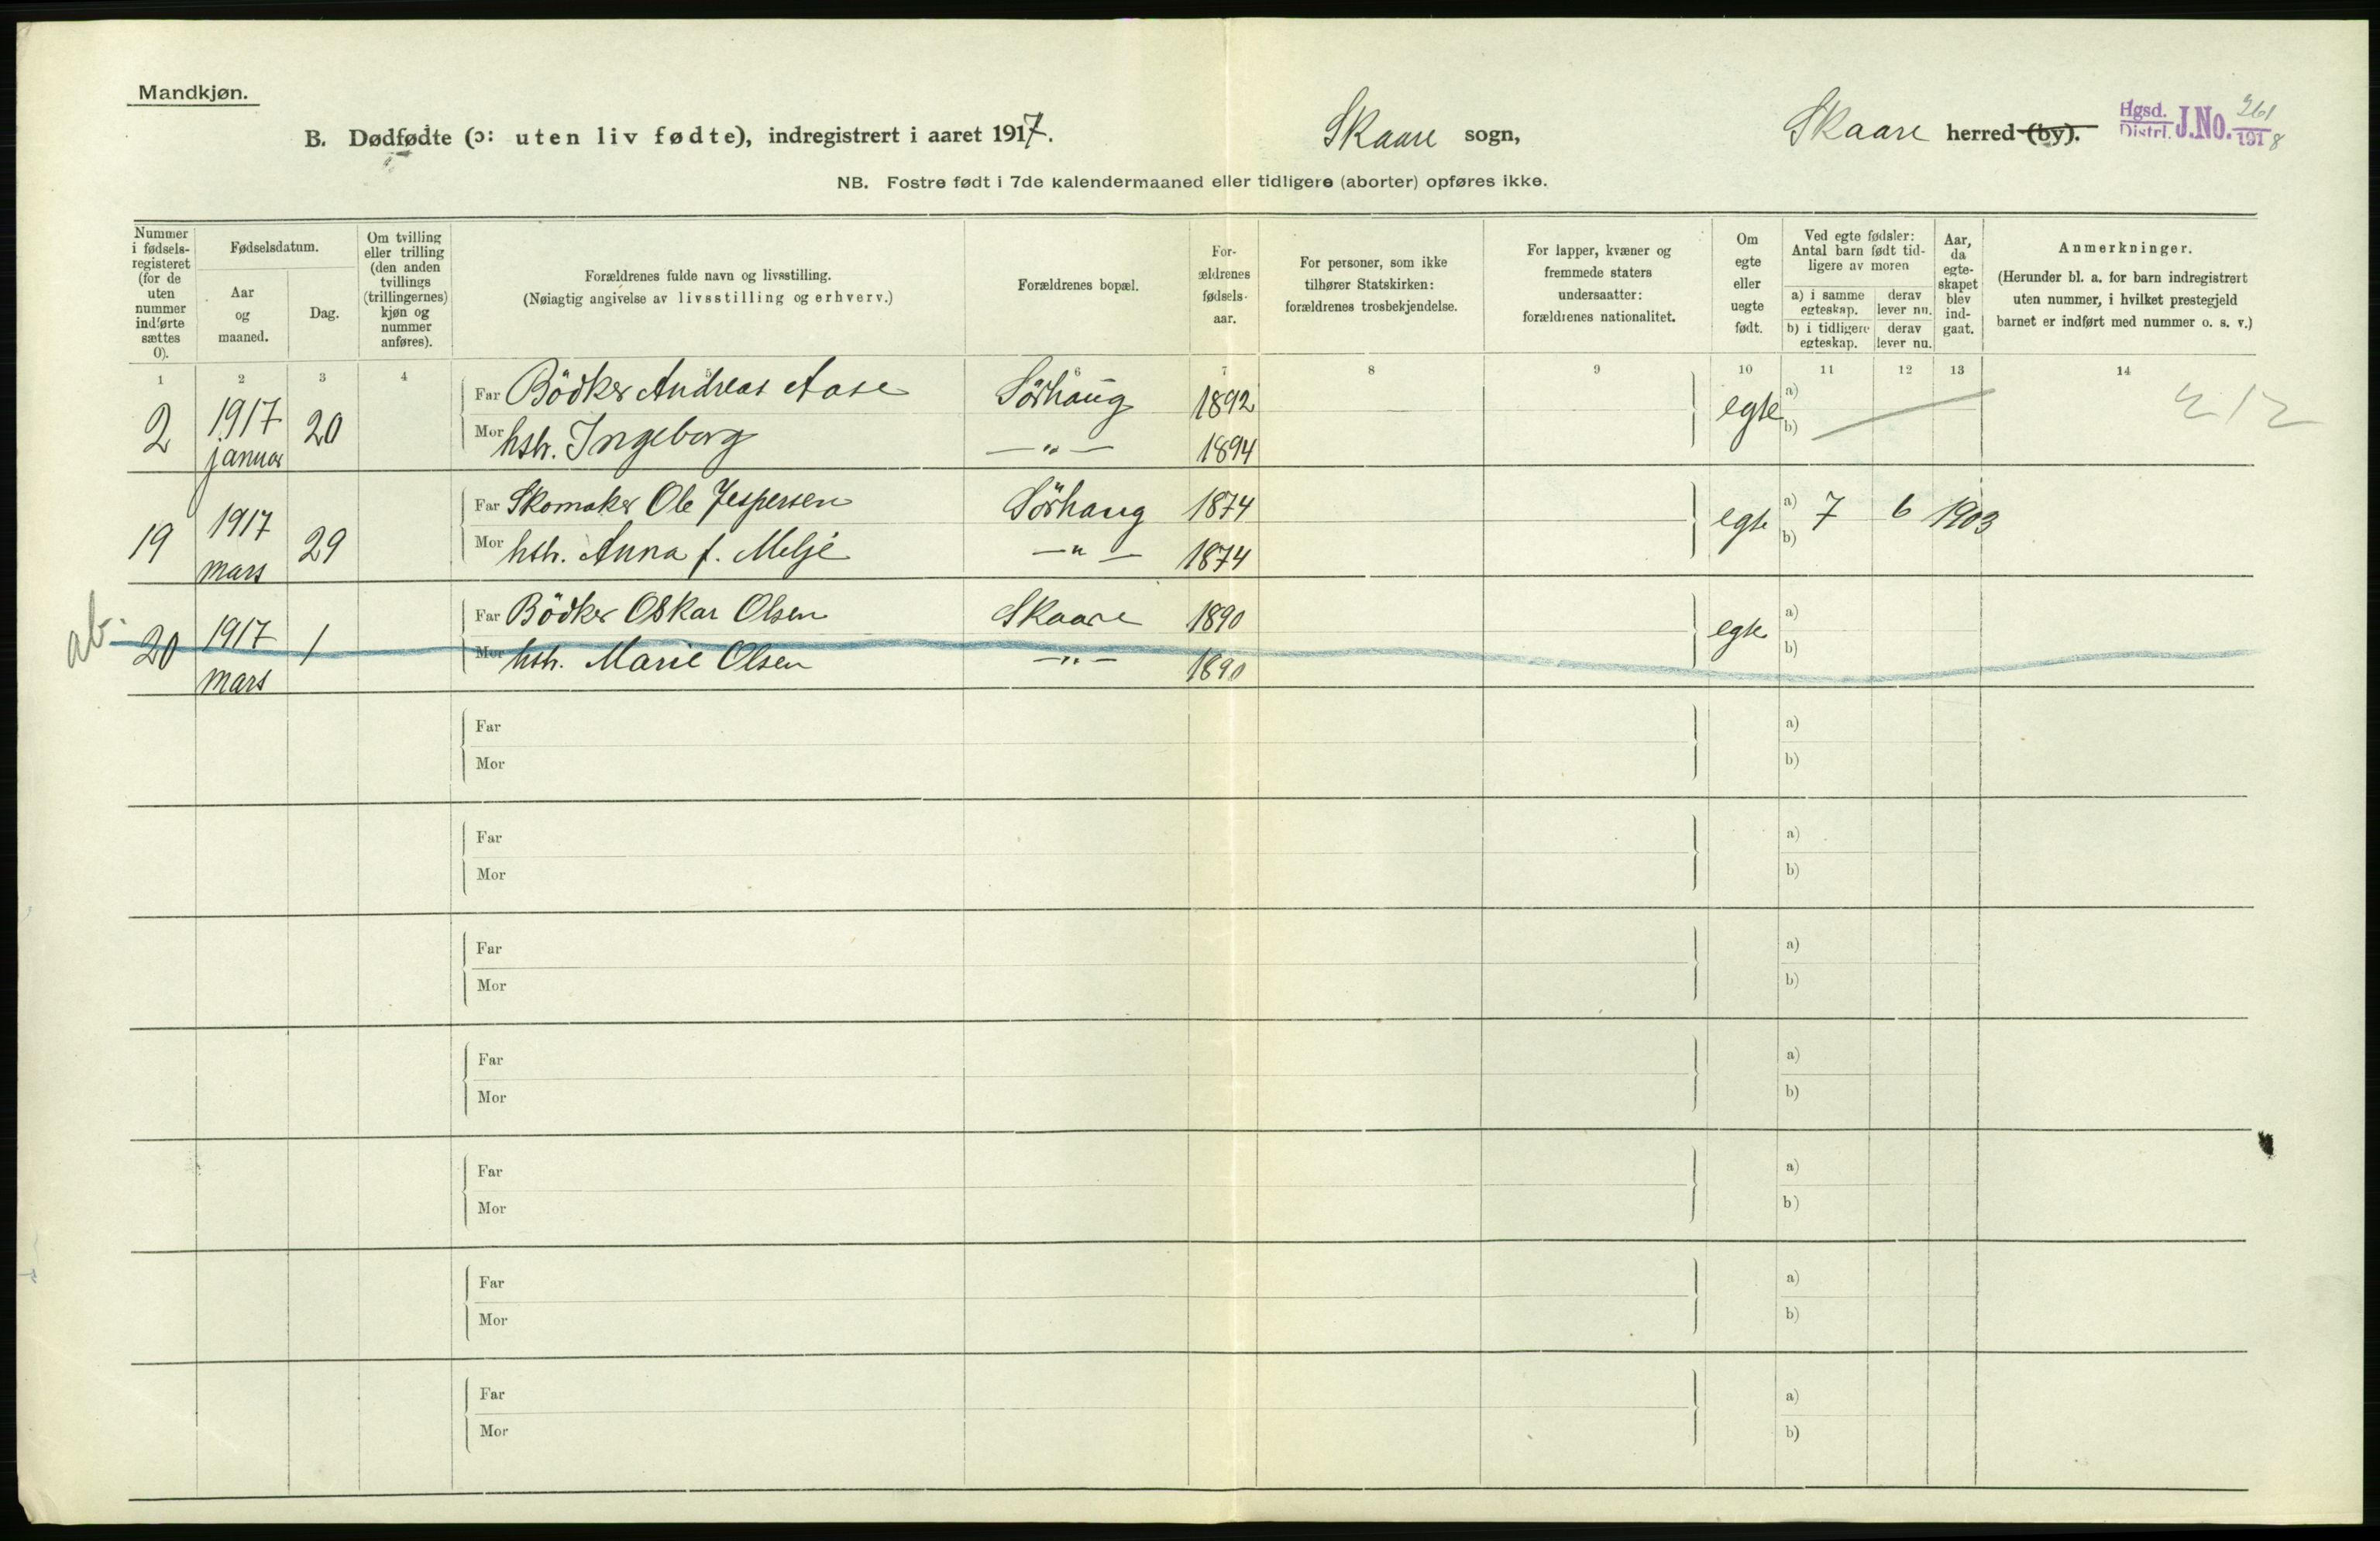 Mandkjøn.
B. Dødfødte (ɔ: uten liv fødte), indregistrert i aaret 1917. Skaare sogn, Skaare herred (by). Hgsd. Distrl. J.No. 261 1918
NB. Fostre født i 7de kalendermaaned eller tidligere (aborter) opføres ikke.
Nummer i fødselsregisteret (for de uten nummer indførte sættes 0).
Fødselsdatum.
Aar og maaned.
Dag.
Om tvilling eller trilling (den anden tvillings (trillingernes) kjøn og nummer anføres).
Forældrenes fulde navn og livsstilling.
(Nøiagtig angivelse av livsstilling og erhverv.)
Forældrenes bopæl.
Forældrenes fødselsaar.
For personer, som ikke tilhører Statskirken: forældrenes trosbekjendelse.
For lapper, kvæner og fremmede staters undersaatter: forældrenes nationalitet.
Om egte eller uegte født.
Ved egte fødsler: Antal barn født tidligere av moren
a) i samme egteskap. derav lever nu.
b) i tidligere egteskap. derav lever nu.
Aar, da egteskapet blev indgaat.
Anmerkninger.
(Herunder bl. a. for barn indregistrert uten nummer, i hvilket prestegjeld barnet er indført med nummer o. s. v.)
1 2 3 4 5 6 7 8 9 10 11 12 13 14
2 1917 januar 20 Far Bödker Andreas Aase Sörhaug 1892 egte a) 212
Mor hstr. Ingeborg —"— 1894 b)
19 1917 mars 29 Far Skomaker Ole Jespersen Sörhaug 1874 egte a) 7 6 1903
Mor hstr. Anna f. Melje —"— 1874 b)
ab. 20 1917 mars 1 Far Bödker Oskar Olsen Skaare 1890 egte a)
Mor hstr. Marie Olsen —"— 1890 b)
Far a)
Mor b)
Far a)
Mor b)
Far a)
Mor b)
Far a)
Mor b)
Far a)
Mor b)
Far a)
Mor b)
Far a)
Mor b)